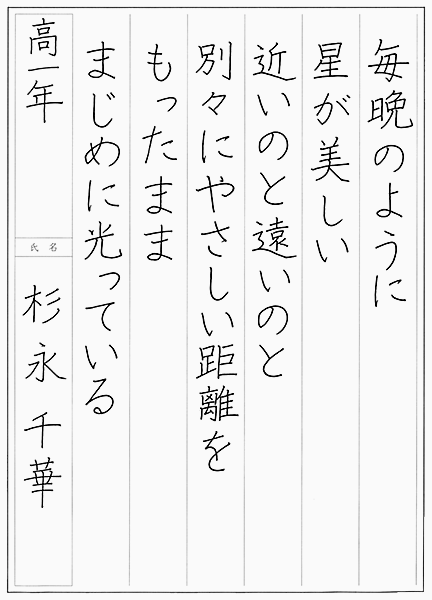 毎晩のように
星が美しい
近いのと遠いのと
別々にやさしい距離を
もったまま
まじめに光っている
高一年
氏名
杉永千華